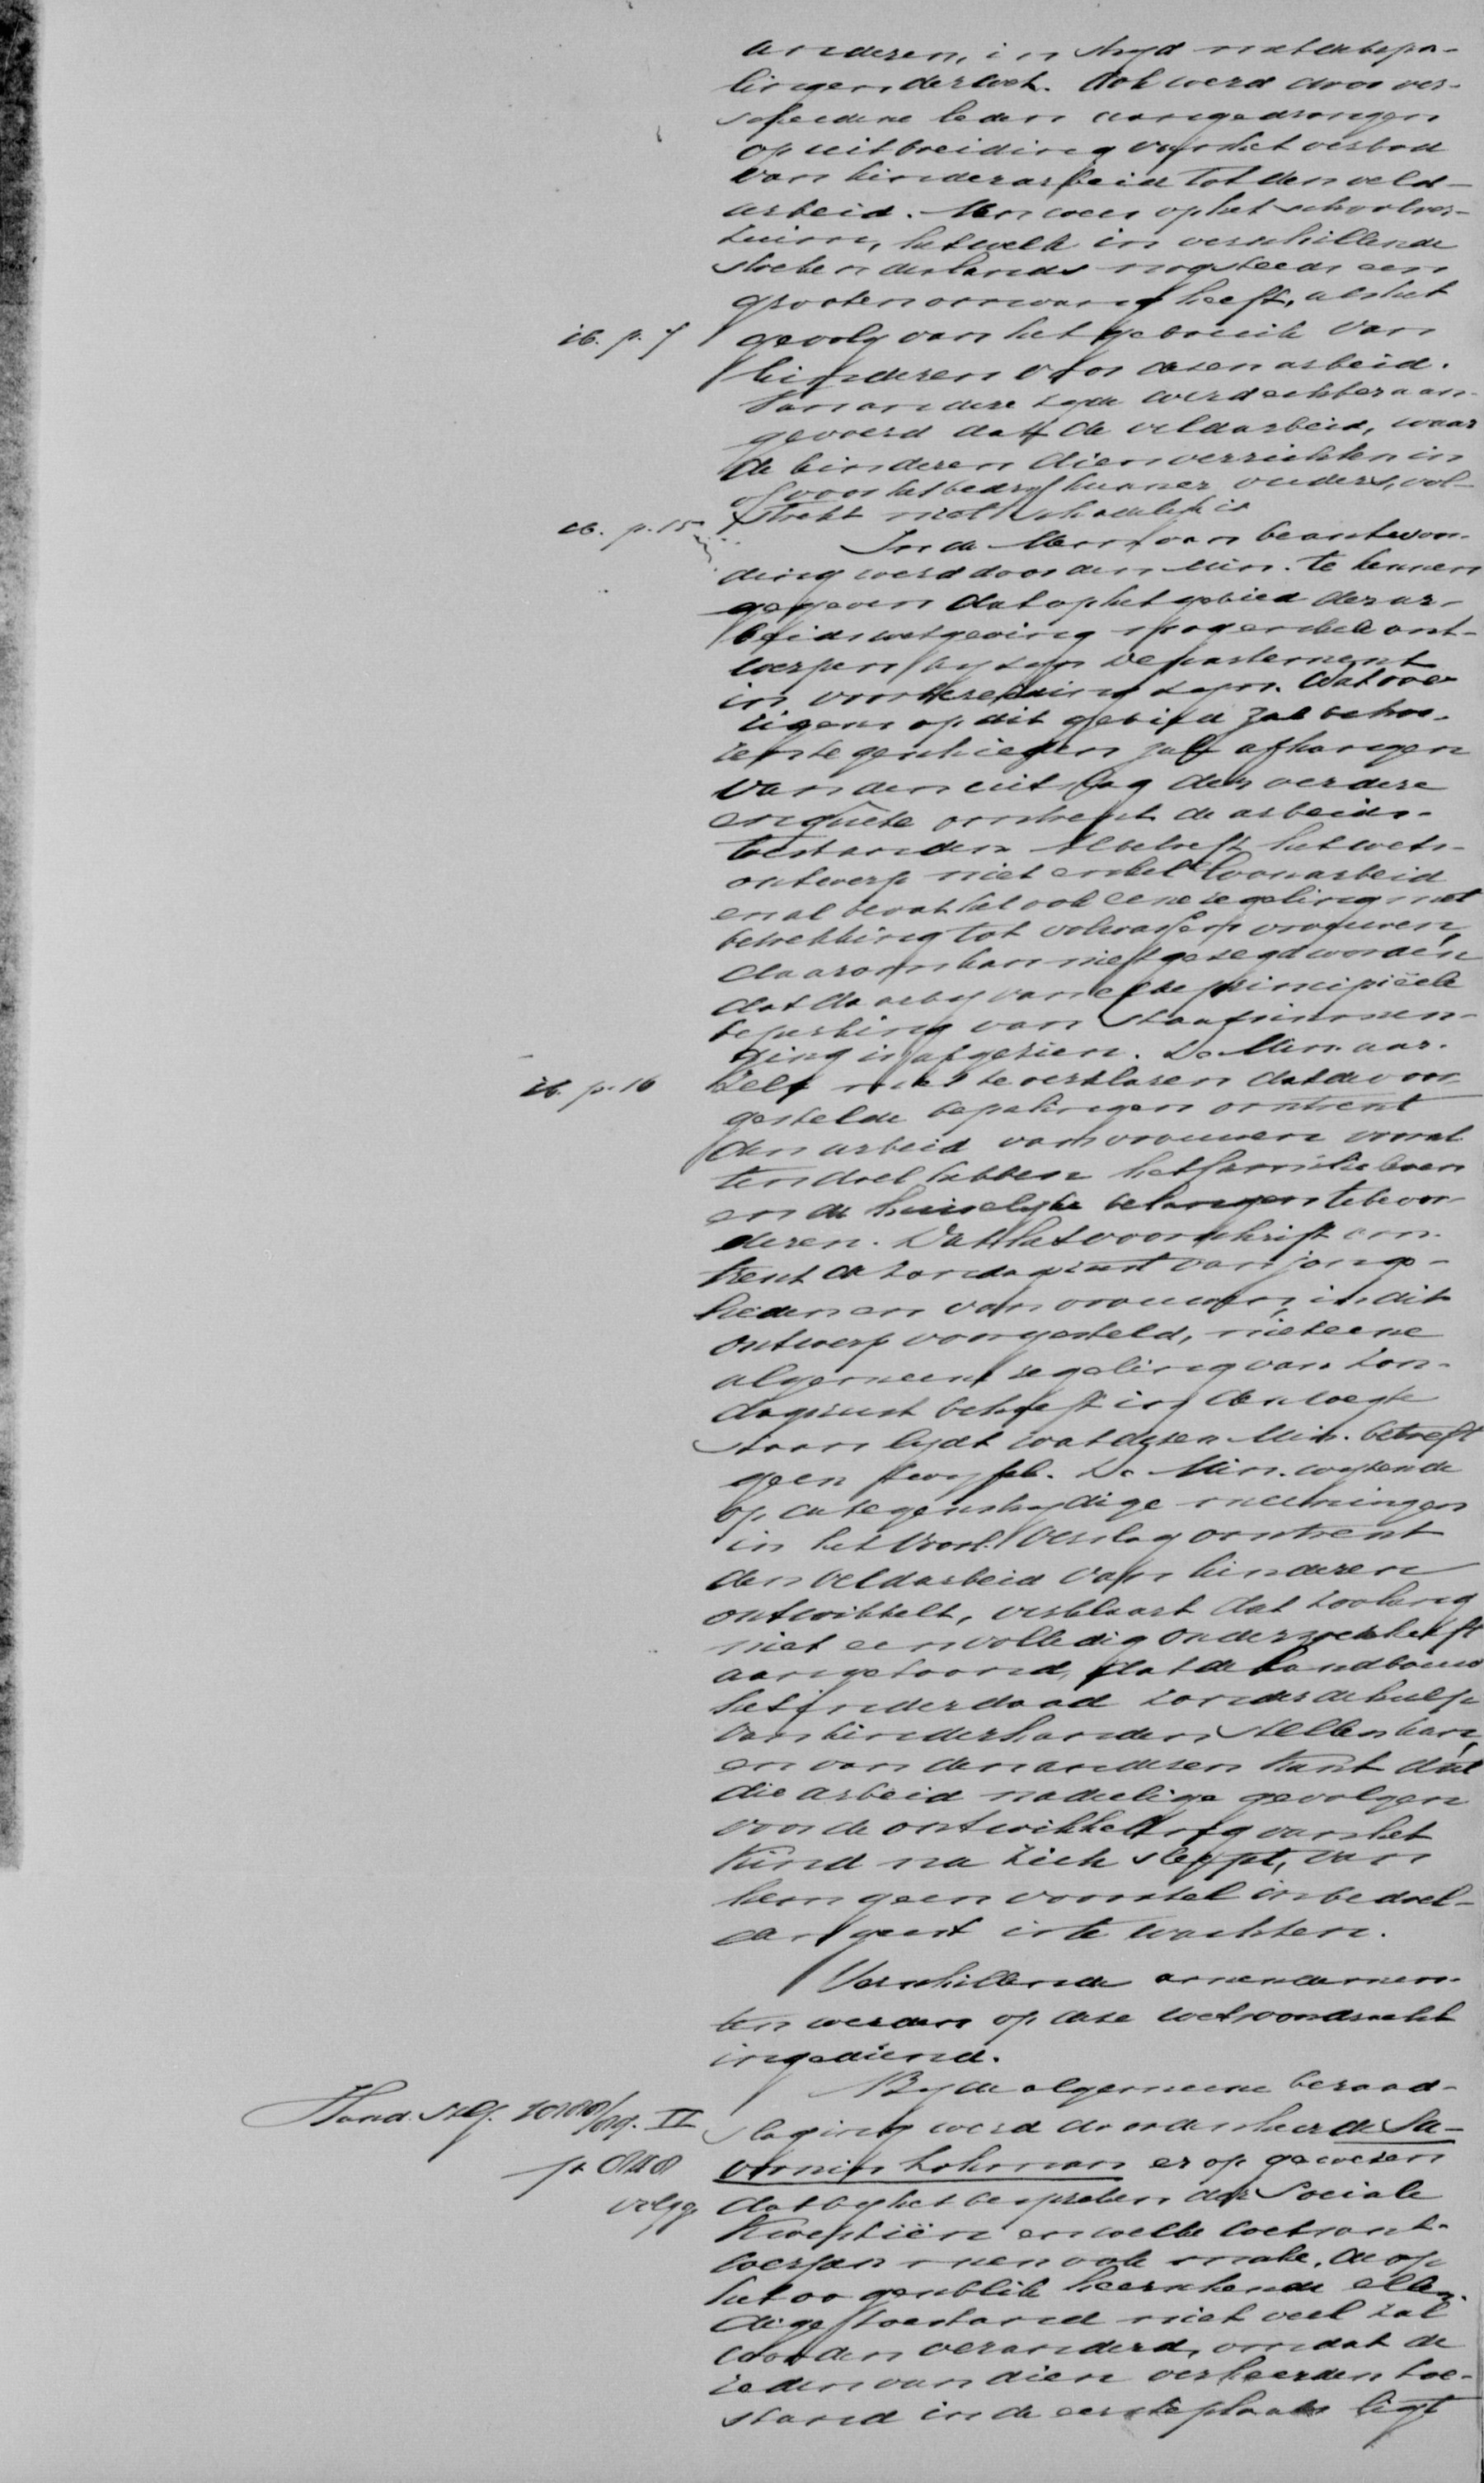 anderen, in stryd met de bepa-
lingen der wet. Ook werd door ver-
scheidene leden aangedrongen
op uitbreiding van het verbod
van kinderarbeid tot den veld-
arbeid. Men wees op het schoolver-
zuim, hetwelk in verschillende
streken des lands nog steeds een
grooten omvang heeft, als het
ib. p. 7 gevolg van het gebruik van
kinderen voor dezen arbeid.
Van andere zyde werd echter aan-
gevoerd dat de veldarbeid, waar
de kinderen dien verrichten in
of voor het bedryf hunner ouders, vol-
ib. p. 15 strekt niet schadelyk is
In de Mem. van beantwoor-
ding werd door den Min. te kennen
gegeven dat op het gebied der ar-
beidswetgeving nog enkele ont-
werpen by zyn Departement
in voorbereiding zyn. Wat ove-
rigens op dit gebied zal behoo-
ren te geschieden zal afhangen
van den uitslag der verdere
enquête omtrent de arbeids-
toestanden. Al betreft het wets-
ontwerp niet enkel loonarbeid
en al bevat het ook eene regeling met
betrekking tot volwassen vrouwen,
daarom kan niet gezegd worden
dat daarby van elke principiëele
beperking van staatsinmen-
ging is afgezien. De Min. aar-
ib. p. 16 zelt niet te verklaren dat de voor-
gestelde bepalingen omtrent
den arbeid van vrouwen vooral
ten doel hebben het familieleven
en de huiselyke belangen te bevor-
deren. Dat het voorschrift om-
trent de zondagsrust van jonge-
lieden en van vrouwen, in dit
ontwerp voorgesteld, niet eene
algemeene regeling van zon-
dagsrust behoeft in den weg te
staan lydt wat dezen Min. betreft
geen twyfel. De Min. wyzende
op de tegenstrydige meeningen
in het Voorl. Verslag omtrent
den veldarbeid van kinderen
ontwikkelt, verklaart dat zoolang
niet een volledig onderzoek heeft
aangetoond, dat de landbouw
het inderdaad zonder de hulp
van kinderhanden stellen kan,
en van den anderen kant dat
die arbeid nadeelige gevolgen
voor de ontwikkeling van het
kind na zich sleept, van
hem geen voorstel in bedoel-
den geest is te wachten.
Verschillende amendemen-
ten werden op deze wetsvoordracht
ingediend.
By de algemeene beraad-
Hand. StG. 1888/89. II slaging werd door den heer de Sa-
p. 848 vornin Lohman er op gewezen
volgg. dat by het bespreken der Sociale
Kwestiën en welke wetsont-
werpen men ook make, de op
het oogenblik heerschende ellen-
dige toestand niet veel zal
worden veranderd, omdat de
reden van dien verkeerden toe-
stand in de eerste plaats ligt